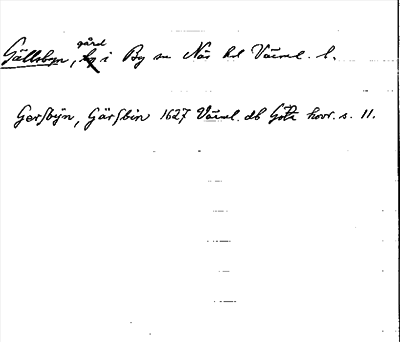 Gällsbyn, gård i By sn Näs hd Värml. l.
Gersbÿn, Gärsbin 1627 Värml. db Göta hovr. s. 11.